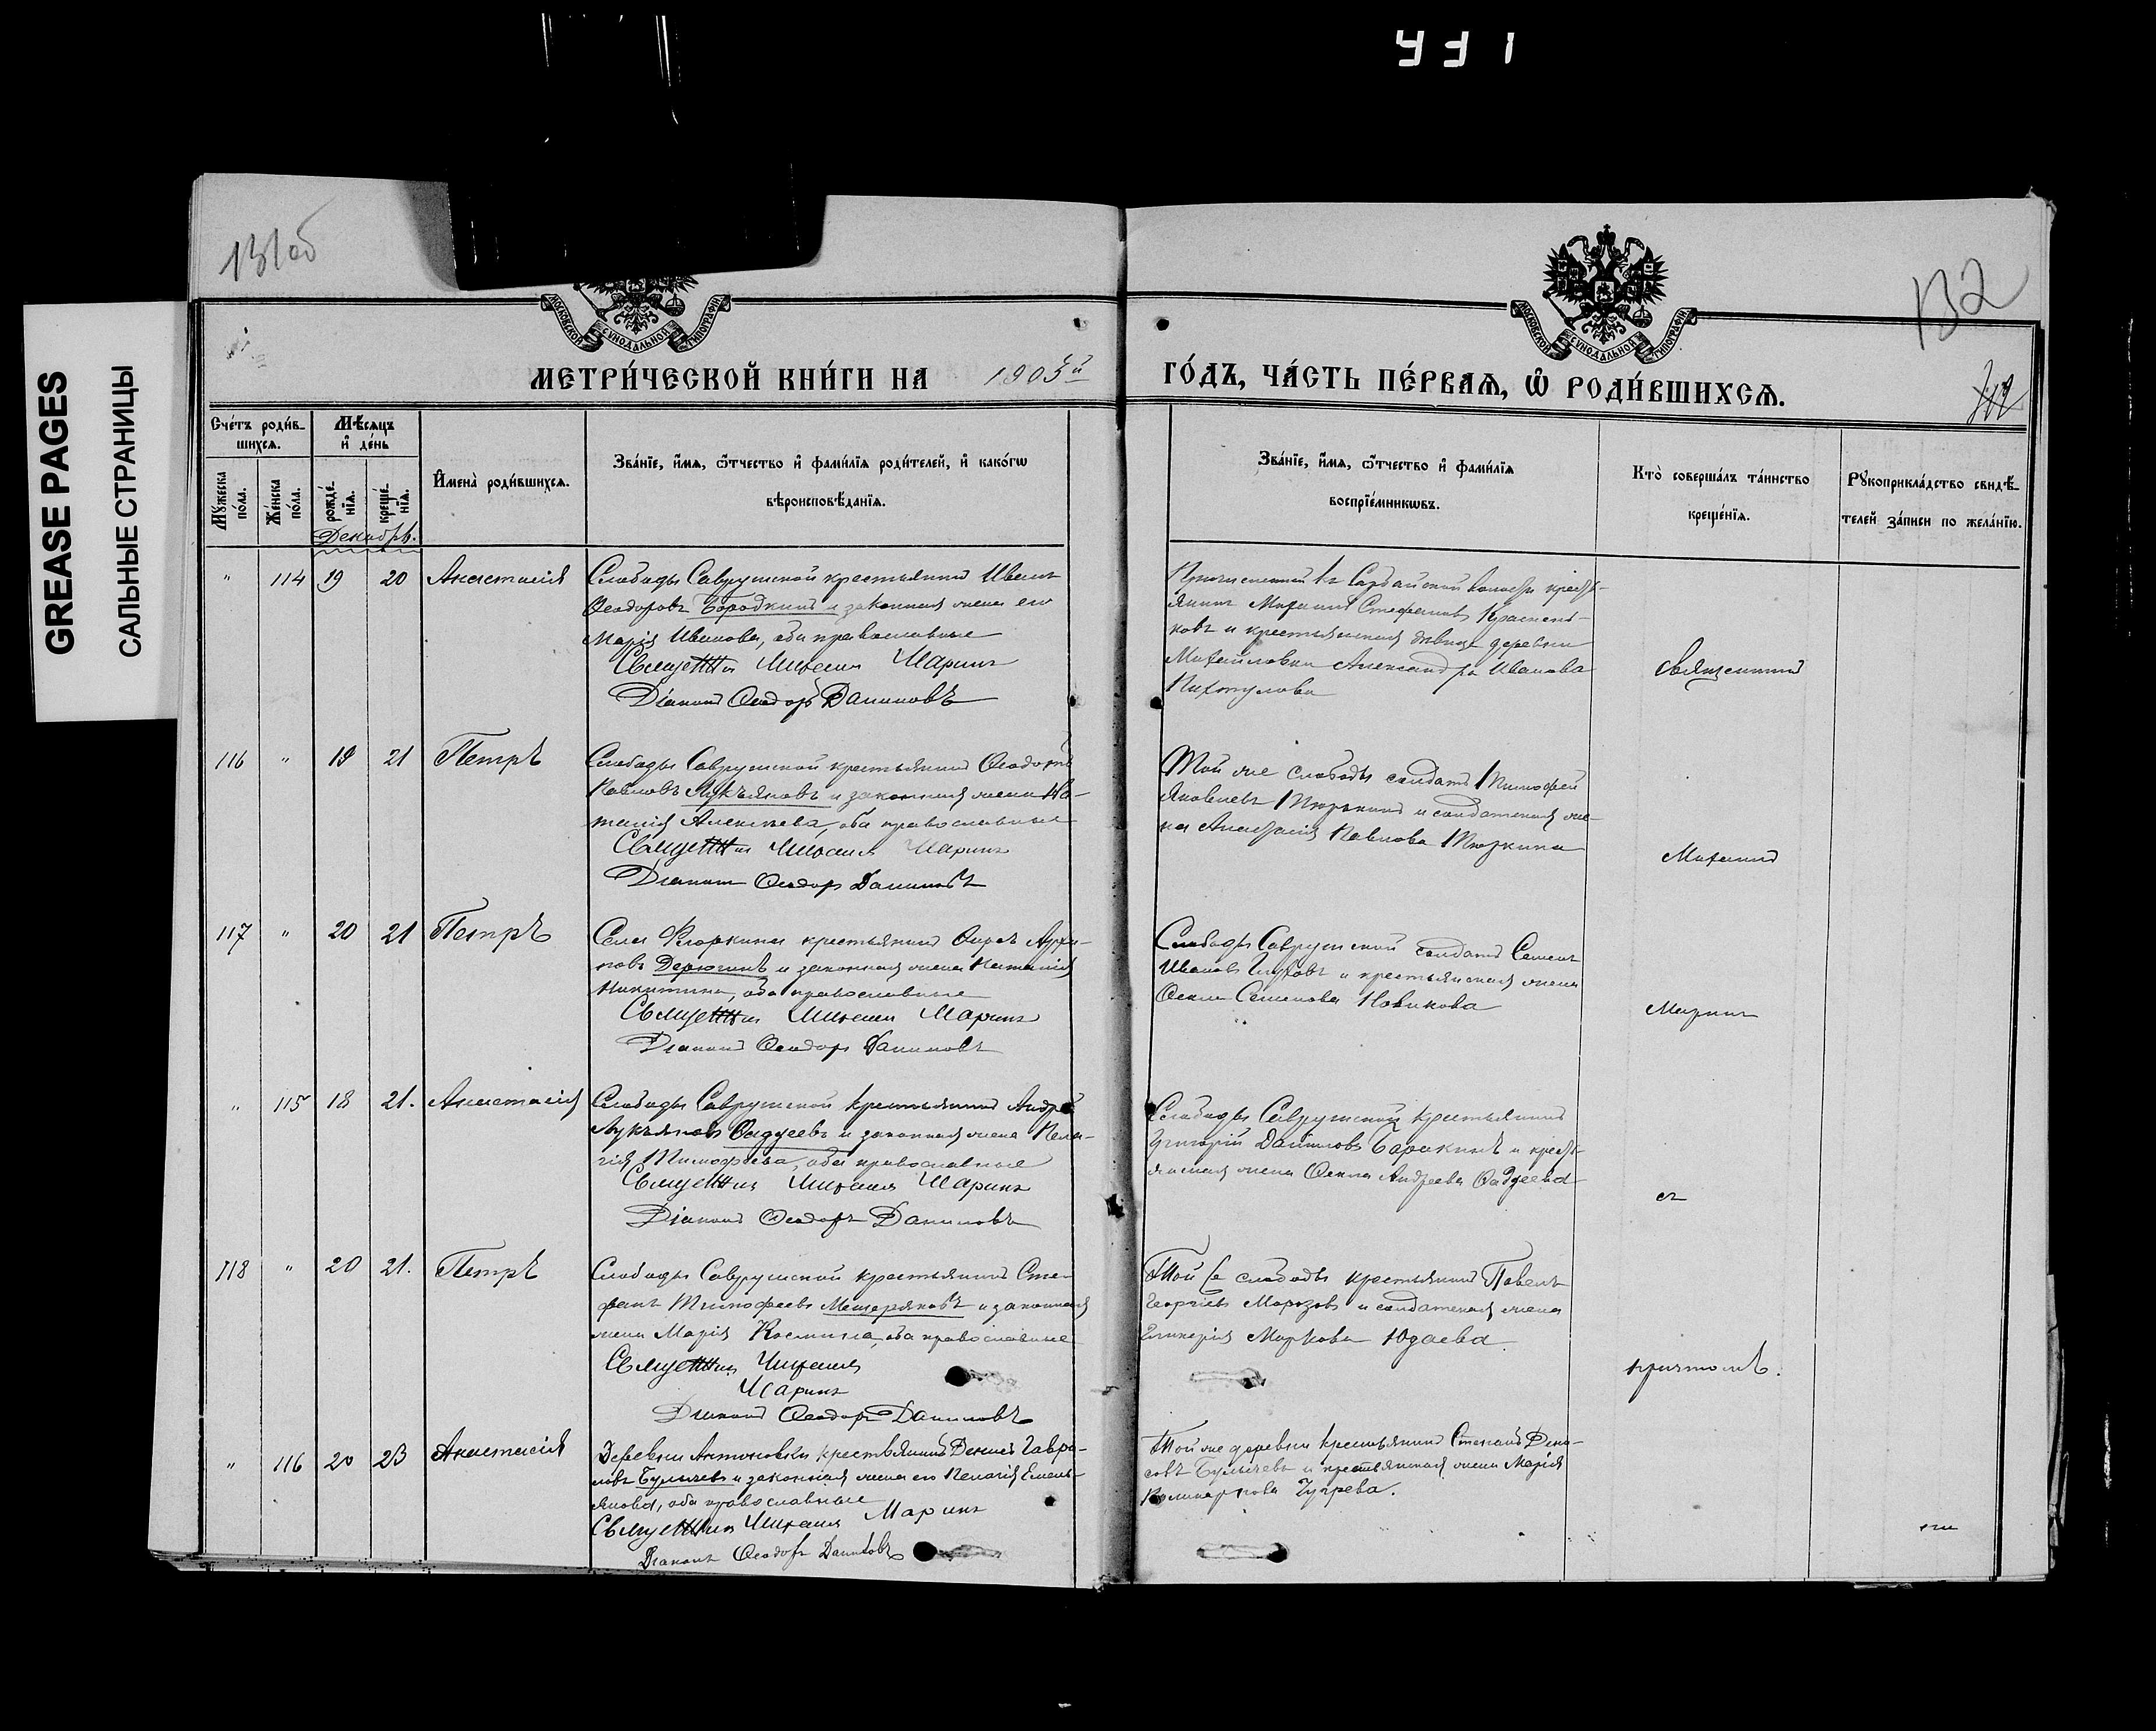 431
131 об
132
GREASE PAGES
САЛЬНЫЕ СТРАНИЦЫ
МОСКОВСКОЙ СУНОДАЛЬНОЙ ТИПОГРАФІИ
МОСКОВСКОЙ СУНОДАЛЬНОЙ ТИПОГРАФІИ
МЕТРИ́ЧЕСКОЙ КНИ́ГИ НА 1905й
ГО́ДЪ, ЧА́СТЬ ПЕ́РВАѦ, Ѡ҆ РОДИ́ВШИХСѦ.
Сче́тъ роди́в-
шихсѧ.
Мѣ́сѧцъ
и҆ де́нь
Мꙋ́жеска
по́ла.
Же́нска
по́ла.
рожде́-
нїѧ.
креще́-
нїѧ.
И҆мена̀ роди́вшихсѧ.
Зва́нїе, и҆́мѧ, ѻ҆́тчество и҆ фами́лїѧ роди́телей, и҆ како́гѡ
вѣроисповѣ́данїѧ.
Зва́нїе, и҆́мѧ, ѻ҆́тчество и҆ фами́лїѧ
воспрїе́мникѡвъ.
Кто̀ соверша́лъ та́инство
креще́нїѧ.
Рꙋкоприкла́дство свидѣ́-
телей за́писи по жела́нїю.
Декабрь.
" 114 19 20 Анастасія
Слободы Саврушской крестьянинъ Иванъ
Ѳеодоровъ Бородкинъ и законная жена его
Марія Иванова, оба православные
Священникъ Михаилъ Маринъ
Діаконъ Ѳеодоръ Даниловъ
крестья-
нинъ Михаилъ Стефановъ Краснень-
ковъ и крестьянская дѣвица деревни
Михайловки Александра Иванова
Священникъ
116 " 19 21 Петръ
Слободы Саврушской крестьянинъ Ѳеодотъ
Павловъ Лукьяновъ и законная жена На-
талія Алексѣева, оба православные
Священникъ Михаилъ Маринъ
Діаконъ Ѳеодоръ Даниловъ
Той же слободы солдатъ Тимофей
Яковлевъ Тюркинъ и солдатская же-
на Анастасія Павлова Тюркина
Михаилъ
117 " 20 21 Петръ
Села крестьянинъ
Дерюгинъ и законная жена Наталія
Никитина, оба православные
Священникъ Михаилъ Маринъ
Діаконъ Ѳеодоръ Даниловъ
Слободы Саврушской солдатъ Семенъ
Ивановъ Глуховъ и крестьянская жена
Ѳекла Семенова Новикова
Маринъ
" 115 18 21. Анастасія
Слободы Саврушской крестьянинъ Андрей
Лукьяновъ Ѳаддеевъ и законная жена Пела-
гія Тимофеева, оба православные
Священникъ Михаилъ Маринъ
Діаконъ Ѳеодоръ Даниловъ
Слободы Саврушской крестьянинъ
Григорій Даниловъ Баракинъ и кресть-
янская жена Ѳекла Андреева Ѳаддеева
съ
118 " 20 21. Петръ
Слободы Саврушской крестьянинъ Сте-
фанъ Тимофеевъ Мещеряковъ и законная
жена Марія Космина, оба православные
Священникъ Михаилъ
Маринъ
Діаконъ Ѳеодоръ Даниловъ
Той же слободы крестьянинъ Павелъ
Георгіевъ Морозовъ и солдатская жена
Гликерія Маркова Юдаева.
причтомъ.
" 116 20 23 Анастасія
Деревни Антоновки крестьянинъ Денисъ Гаври-
ловъ Булычевъ и законная жена его Пелагія Емель-
янова, оба православные
Священникъ Михаилъ Маринъ
Діаконъ Ѳеодоръ Даниловъ
Той же деревни крестьянинъ Степанъ Дени-
совъ Булычевъ и крестьянская жена Марія